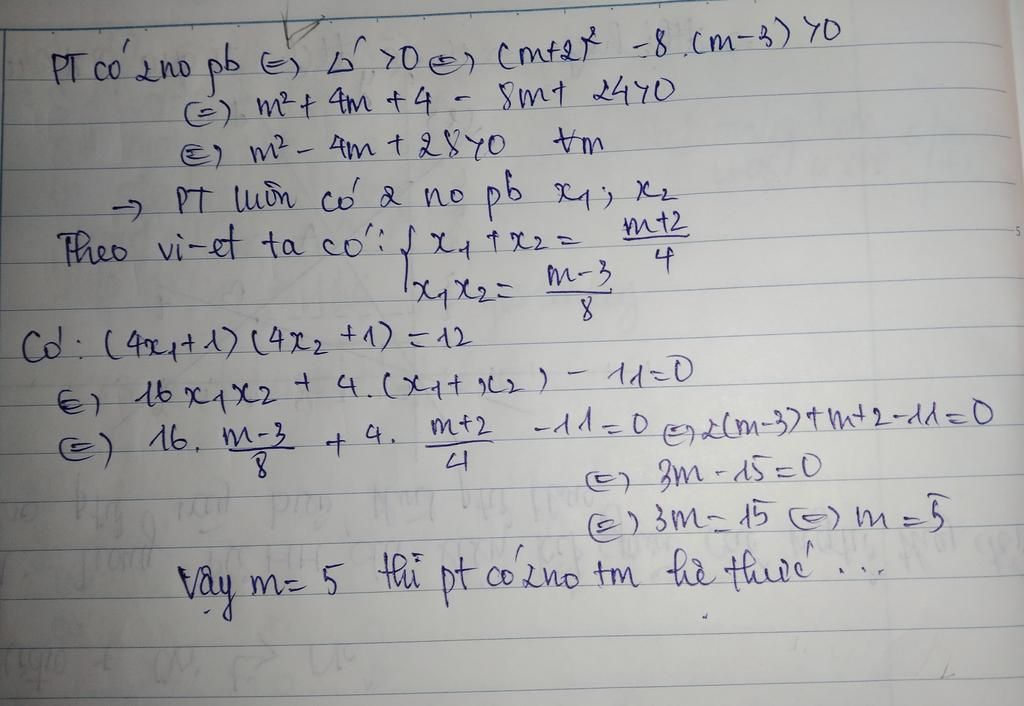 PT có 2no pb (=) Δ' >0 (=) (m+2)² -8.(m-3) >0
(=) m² + 4m + 4 - 8m + 24>0
(=) m² - 4m + 28>0 ∀m
→ PT luôn có 2 no pb x₁; x₂
Theo vi-et ta có: { x₁ + x₂ = (m+2)/4
x₁x₂ = (m-3)/8
Có: (4x₁+1)(4x₂+1) = 12
(=) 16x₁x₂ + 4.(x₁+x₂) - 11=0
(=) 16. (m-3)/8 + 4. (m+2)/4 -11=0 (=) 2(m-3)+m+2-11=0
(=) 3m - 15=0
(=) 3m = 15 (=) m = 5
Vậy m= 5 thì pt có 2no tm hệ thức ...